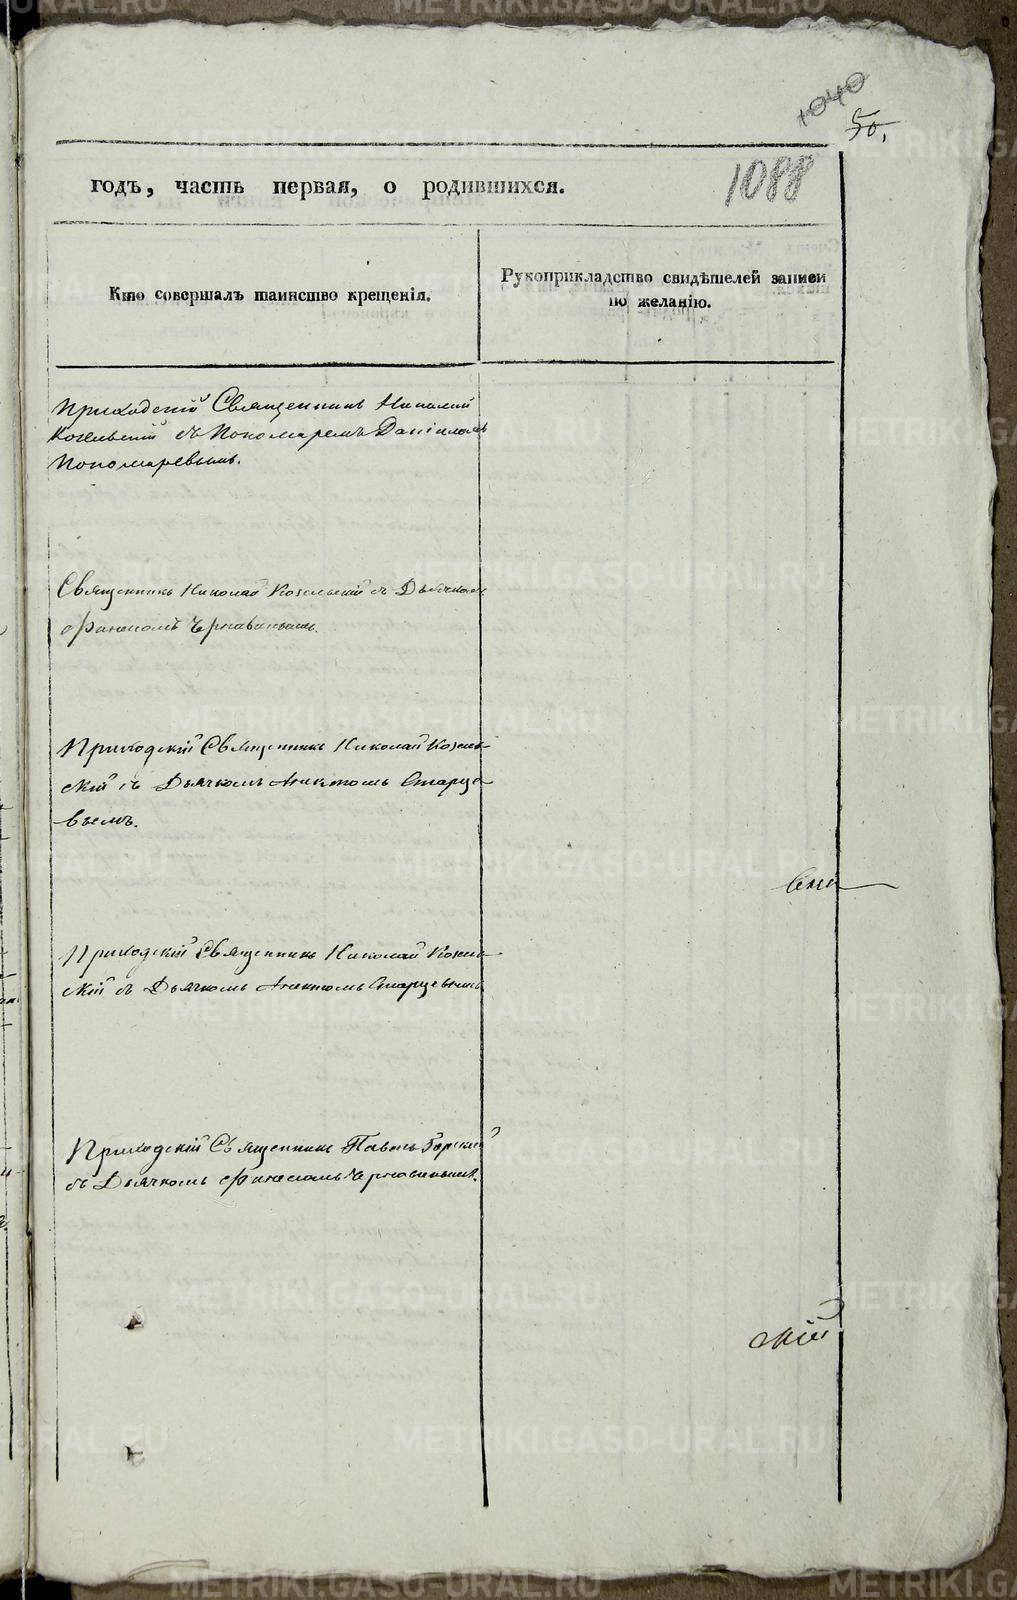 1040
50,
1088
годъ, часть первая, о родившихся.
Кто совершалъ таинство крещенія.
Рукоприкладство свидѣтелей записи
по желанію.
Приходскій Священникъ Николай
Козельскій съ Пономаремъ Даніиломъ
Пономаревымъ.
Священникъ Николай Козельскій съ Дьячкомъ
Финеесомъ Чернавинымъ.
Приходскій Священникъ Николай Козель-
скій съ Дьячкомъ Аникитомъ Старце-
вымъ.
Приходскій Священникъ Николай Козель-
скій съ Дьячкомъ Аникитомъ Старцевымъ
Приходскій Священникъ Павелъ Горскій
съ Дьячкомъ Финеесомъ Чернавинымъ.
скій
METRIKI.GASO-URAL.RU